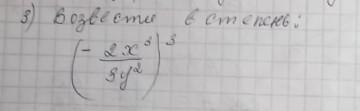 3) Возвести в степень:
(- 2x³/3y²)³